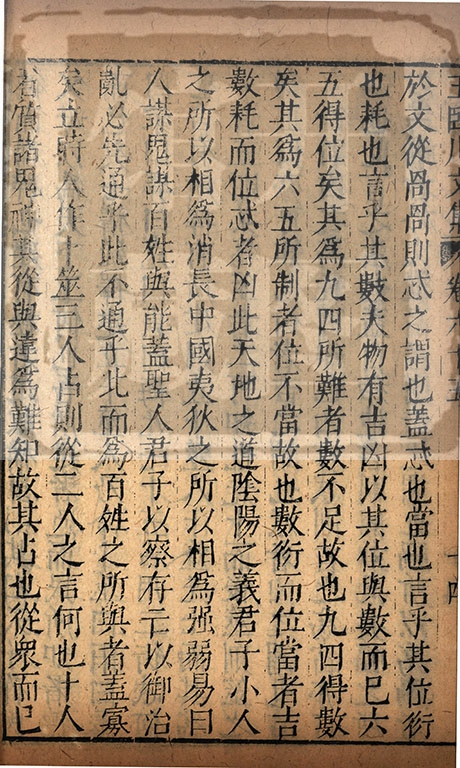 王臨川文集 卷六十五 十四
於文從咼咼則忒之謂也蓋忒也當也言乎其位衍
也耗也言乎其數夫物有吉凶以其位與數而巳六
五得位矣其爲九四所難者數不足故也九四得數
矣其爲六五所制者位不當故也數衍而位當者吉
數耗而位忒者凶此天地之道陰陽之義君子小人
之所以相爲消長中國夷狄之所以相爲强弱易曰
人謀鬼謀百姓與能蓋聖人君子以察存亡以御治
亂必先通乎此不通乎此而爲百姓之所與者蓋寡
矣立時人作卜筮三人占則從二人之言何也卜人
者質諸鬼神其從與違爲難知故其占也從衆而巳